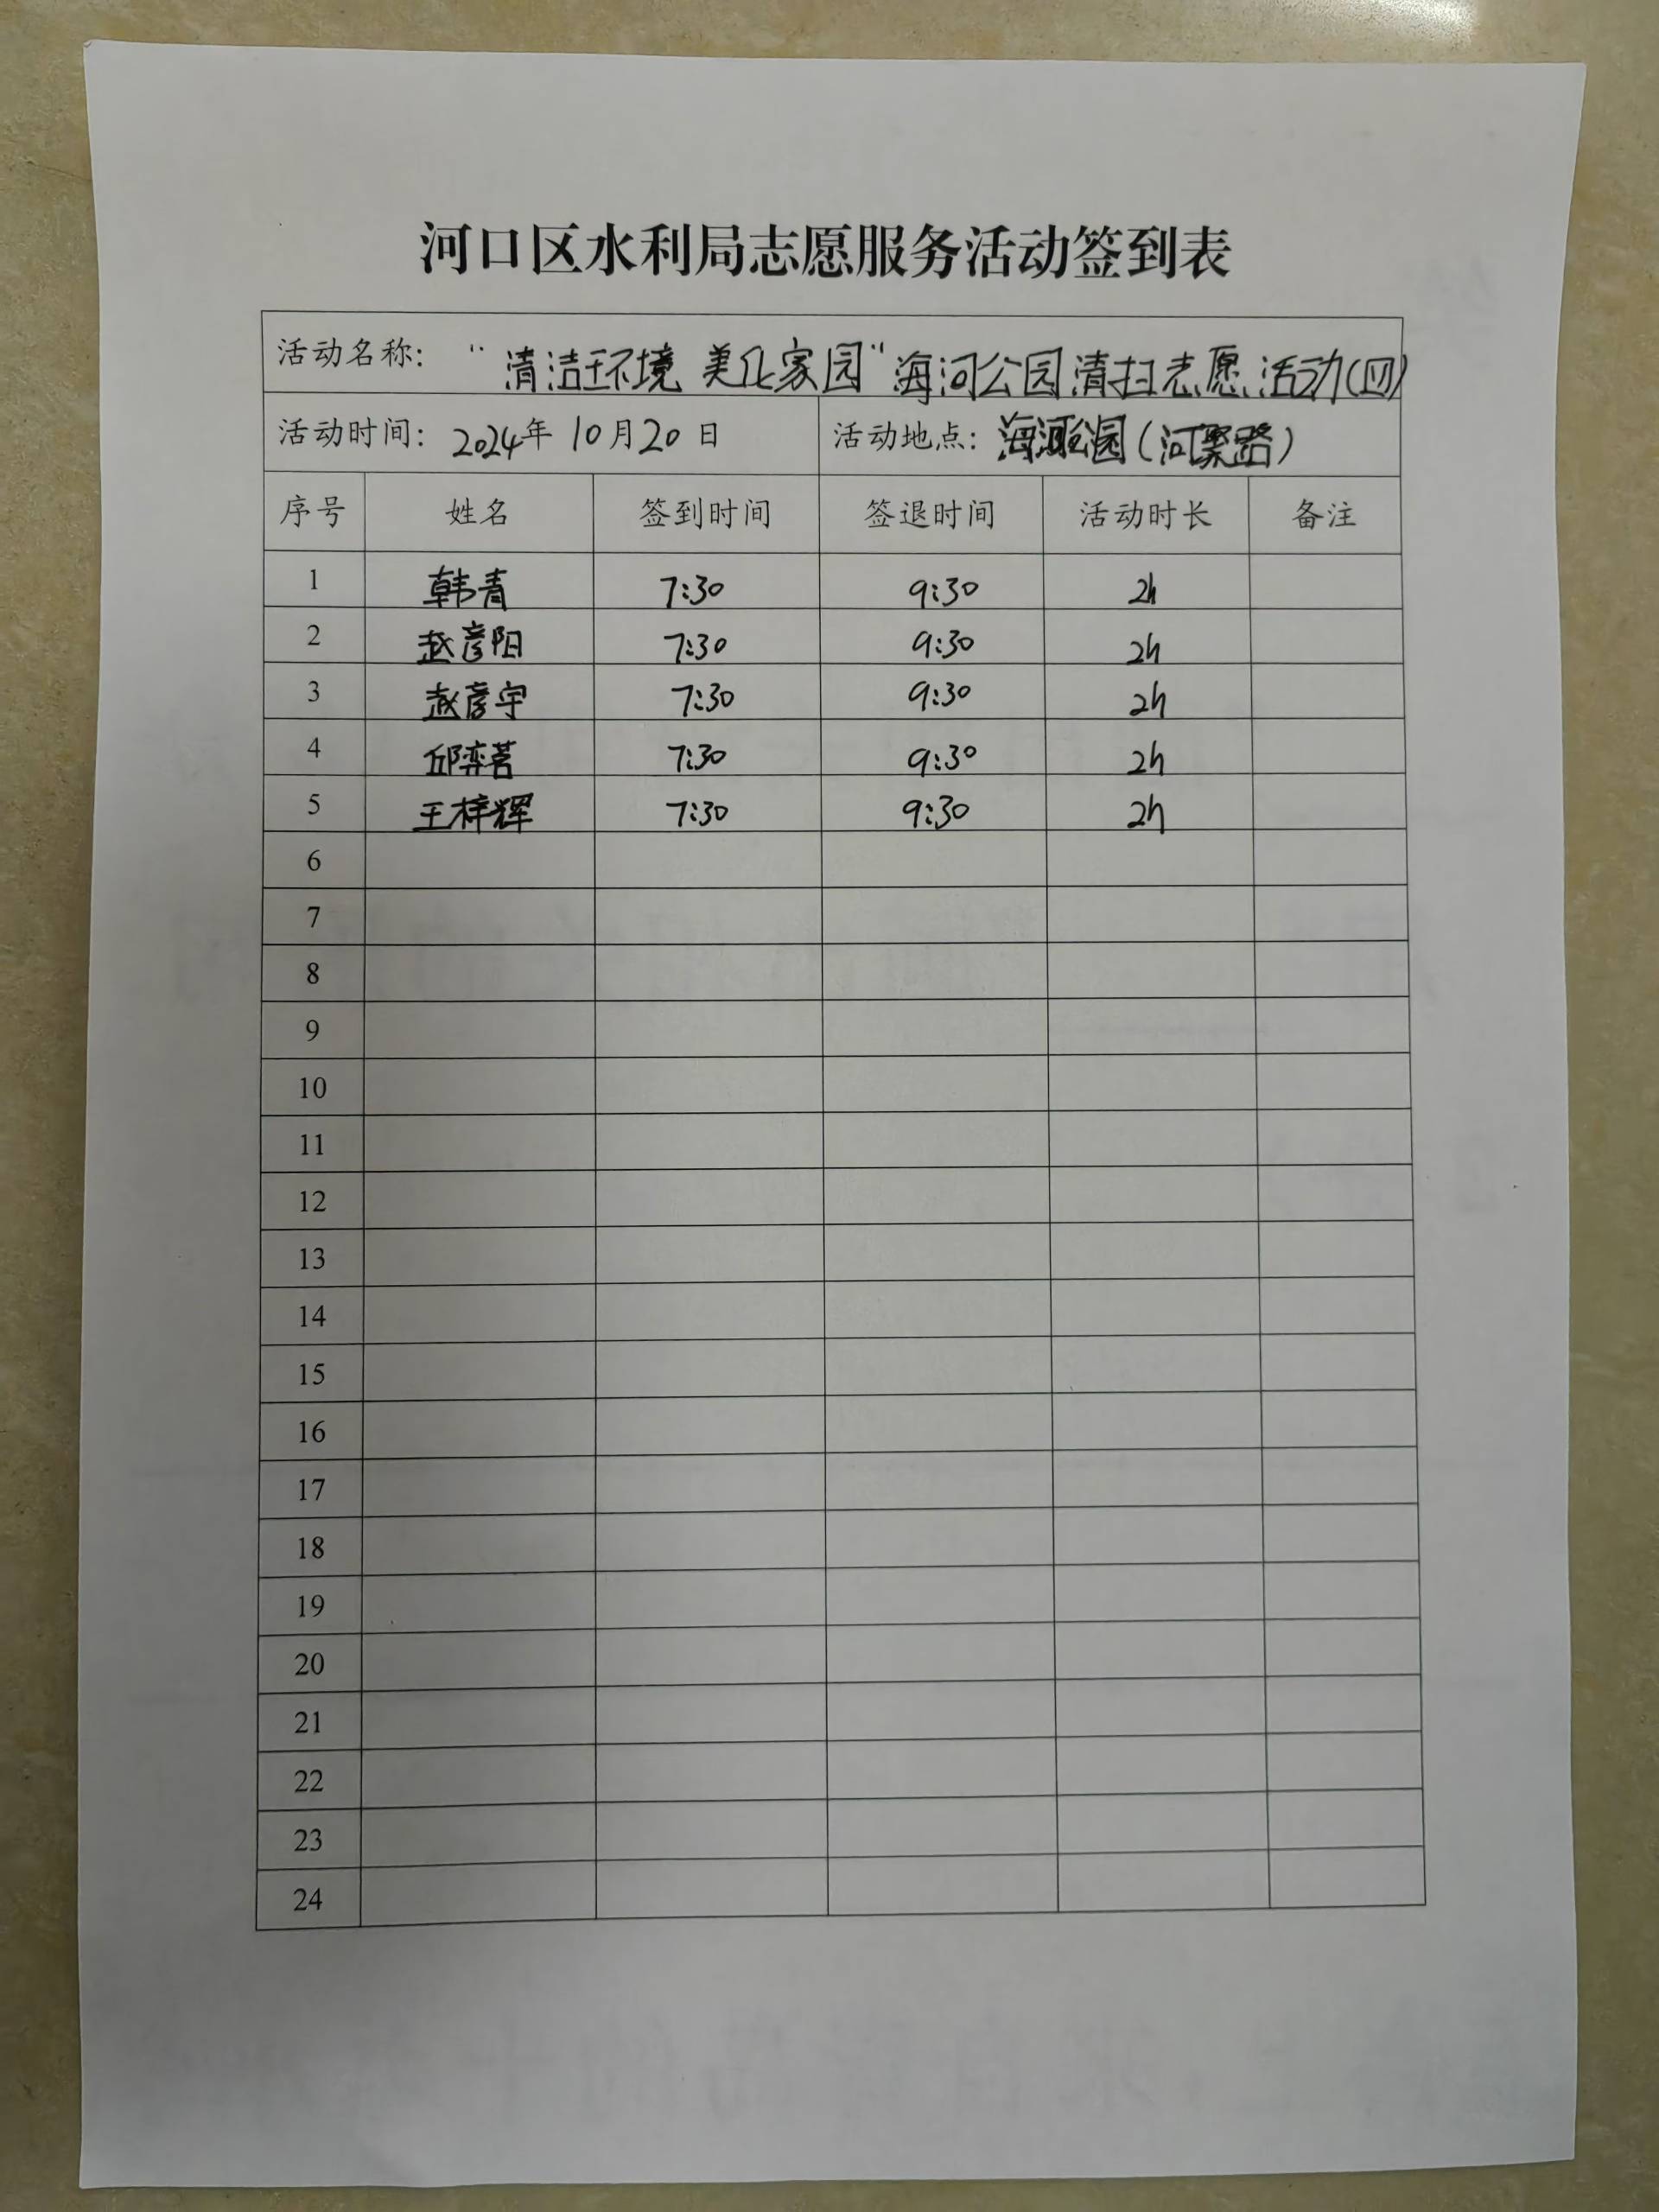 河口区水利局志愿服务活动签到表
活动名称: "清洁环境 美化家园"海河公园清扫志愿活动(四)
活动时间: 2024年10月20日 活动地点: 海河公园(河聚路)
序号 姓名 签到时间 签退时间 活动时长 备注
1 韩青 7:30 9:30 2h
2 赵彦阳 7:30 9:30 2h
3 赵彦宇 7:30 9:30 2h
4 邱弈茗 7:30 9:30 2h
5 王梓辉 7:30 9:30 2h
6
7
8
9
10
11
12
13
14
15
16
17
18
19
20
21
22
23
24